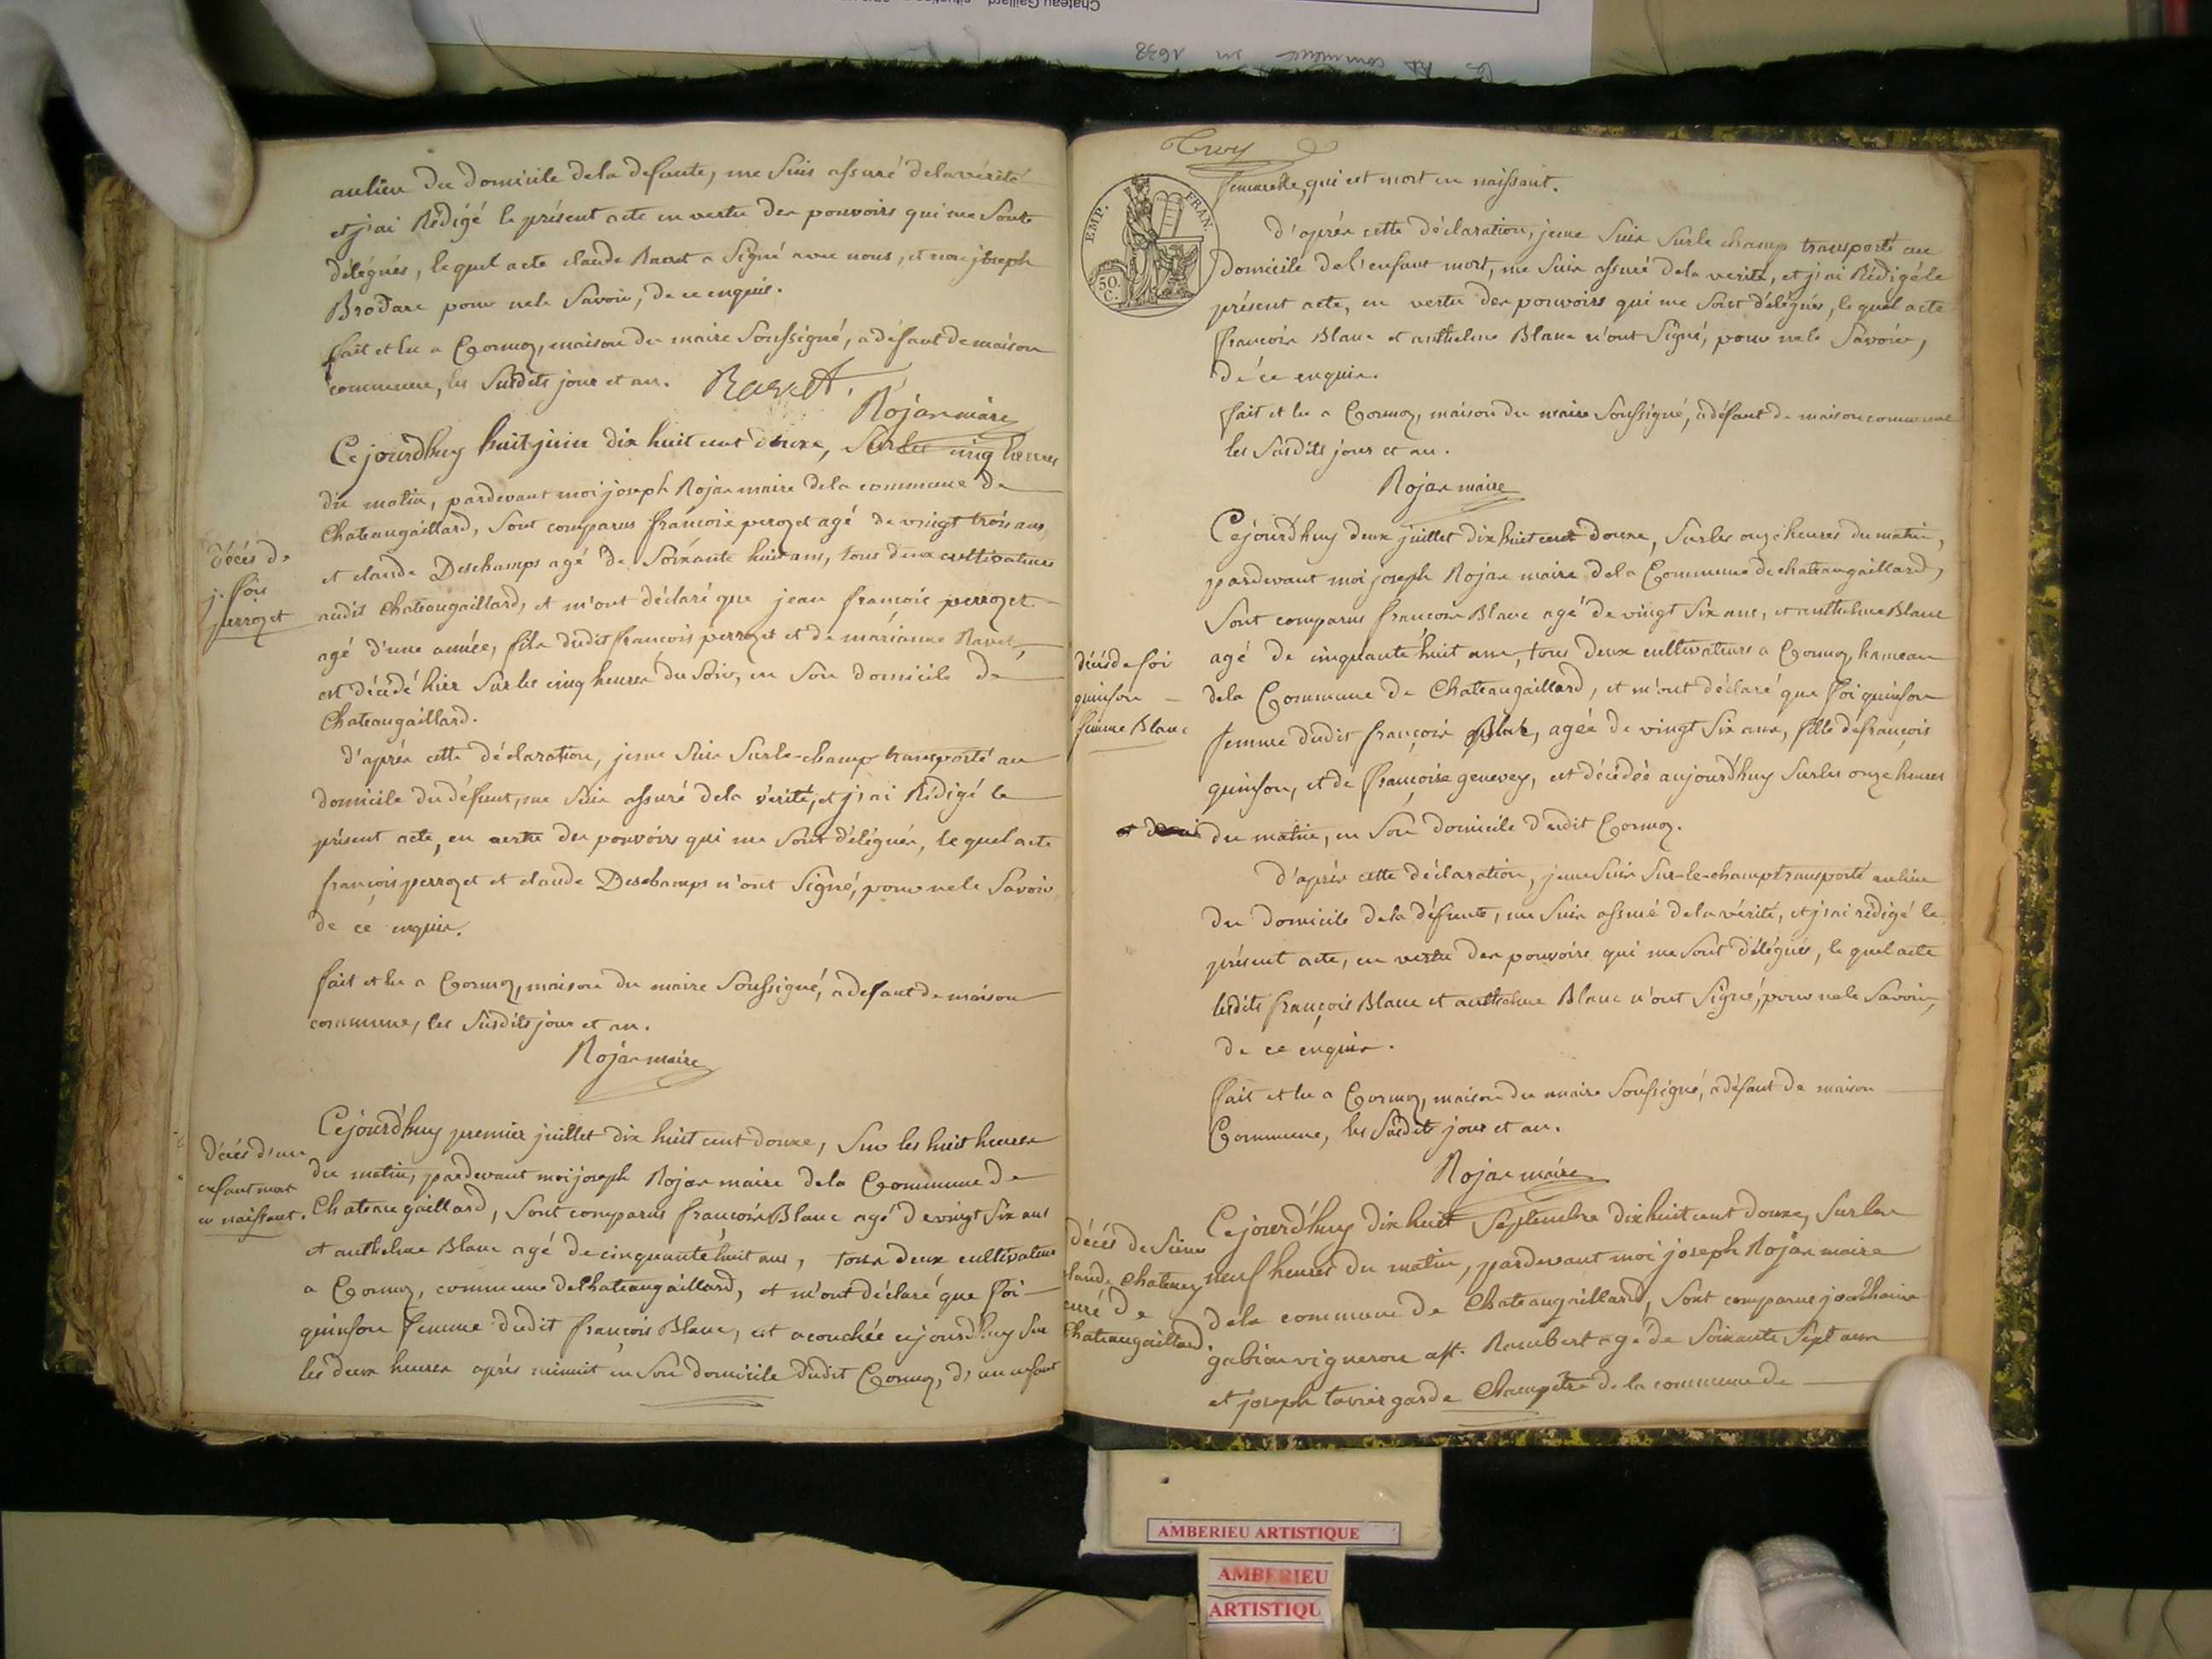 au lieu du domicile de la defunte, me suis assuré de la vérité
et j'ai Rédigé le présent acte en vertu des pouvoirs qui me sont
délégués, le quel acte claude Ravet a signé avec nous, et non joseph
Brodare pour ne le savoir, de ce enquis.
fait et lu a Cormoz, maison du maire soussigné, a défaut de maison
commune, les susdits jour et an. Ravet.
Rojas maire
Ce jourdhuy huit juin dix huit cent douze, sur les cinq heures
du matin, pardevant moi joseph Rojas maire de la commune de
Chateaugaillard, sont comparus françois perozet agé de vingt trois ans
et claude Deschamps agé de soixante huit ans, tous deux cultivateurs
audit Chateaugaillard, et m'ont déclaré que jean françois perrozet
agé d'une année, fils dudit françois perrozet et de marianne Ravet,
est décédé hier sur les cinq heures du soir, en son domicile de
Chateaugaillard.
décès de
j. fois
perrozet
d'après cette déclaration, je me suis sur le-champ transporté au
domicile du défunt, me suis assuré de la vérité, et j'ai Rédigé le
présent acte, en vertu des pouvoirs qui me sont délégués, le quel acte
françois perrozet et claude Deschamps n'ont signé, pour ne le savoir
de ce enquis.
fait et lu a Cormoz, maison du maire soussigné, a defaut de maison
commune, les susdits jour et an.
Rojas maire
Ce jourdhuy premier juillet dix huit cent douze, sur les huit heures
du matin, pardevant moi joseph Rojas maire de la Commune de
Chateaugaillard, sont comparus françois Blanc agé de vingt six ans
et anthelme Blanc agé de cinquante huit ans, tous deux cultivateurs
a Cormoz, commune de Chateaugaillard, et m'ont déclaré que foi
quinson femme dudit françois Blanc, est acouchée cejourdhuy sur
les deux heures après minuit en son domicile dudit Cormoz, d'un enfant
décès d'un
enfant mort
en naissant.
femarelle, qui est mort en naissant.
EMP. FRAN.
50. C.
d'après cette déclaration, je me suis sur le champ transporté au
domicile de l'enfant mort, me suis assuré de la verité, et j'ai Rédigé le
présent acte, en vertu des pouvoirs qui me sont délégués, le quel acte
françois Blanc et anthelme Blanc n'ont signé, pour ne le savoir,
de ce enquis.
fait et lu a Cormoz, maison du maire soussigné, a défaut de maison commune
les susdits jour et an.
Rojas maire
Cejourdhuy deux juillet dix huit cent douze, sur les onze heures du matin,
pardevant moi joseph Rojas maire de la Commune de chateaugaillard,
sont comparus françois Blanc agé de vingt six ans, et anthelme Blanc
agé de cinquante huit ans, tous deux cultivateurs a Cormoz, hameau
de la Commune de Chateaugaillard, et m'ont déclaré que foi quinson
femme dudit françois Blanc, agée de vingt six ans, fille de françois
quinson, et de françoise genevey, est décédée aujourdhuy sur les onze heures
du matin, en son domicile dudit Cormoz.
décès de foi
quinson
femme Blanc
d'après cette déclaration, je me suis sur-le-champ transporté au lieu
du domicile de la défunte, me suis assuré de la vérité, et j'ai rédigé le
présent acte, en vertu des pouvoirs qui me sont délégués, le quel acte
lesdits françois Blanc et anthelme Blanc n'ont signé, pour ne le savoir,
de ce enquis.
fait et lu a Cormoz, maison du maire soussigné, a défaut de maison
Commune, les susdits jour et an.
Rojas maire
Cejourdhuy dix huit septembre dix huit cent douze, sur les
neuf heures du matin, pardevant moi joseph Rojas maire
de la commune de Chateaugaillard, sont comparus joachain
gabion vigneron a st. Rambert agé de soixante sept ans
et joseph tavier garde Champêtre de la commune de
décès de sieur
claude chatenay
curé de
Chateaugaillard
AMBERIEU ARTISTIQUE
AMBERIEU
ARTISTIQU
Chateau Gaillard
commence en 1638